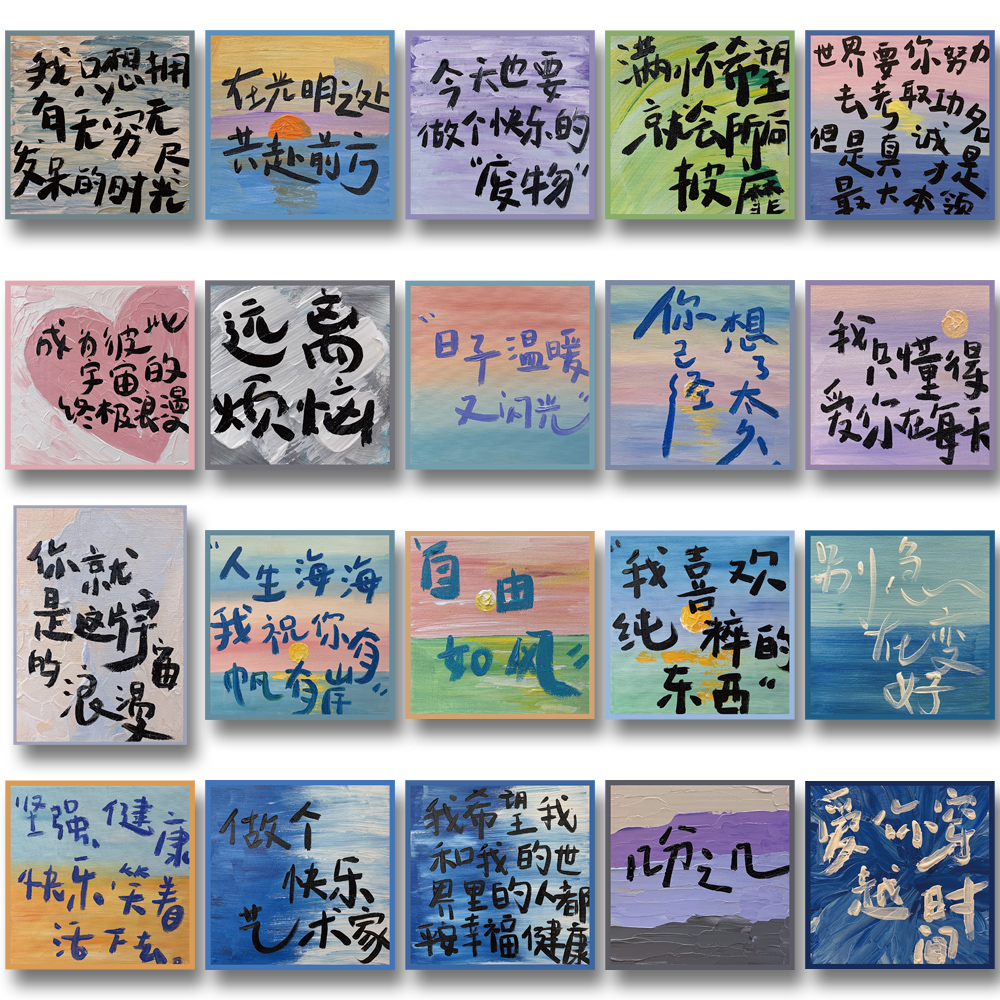 我只想拥
有无穷无尽
发呆的时光
在光明之处
共赴前方
今天也要
做个快乐的
"废物"
满怀希望
就会所向
披靡
世界要你努力
去考取功名
但是真诚才是
最大本领
成为彼此
宇宙的
终极浪漫
远离
烦恼
"日子温暖
又闪光"
你已经
想了太久
我只懂得
爱你在每天
你就
是这片宇宙
的浪漫
"人生海海
我祝你有
帆有岸"
"自由
如风"
"我喜欢
纯粹的
东西"
别急
在变
好
坚强、健康
快乐、笑着
活下去。
做个
快乐
艺术家
我希望我
和我的世
界里的人都
平安幸福健康
几分之几
爱你穿
越时
间